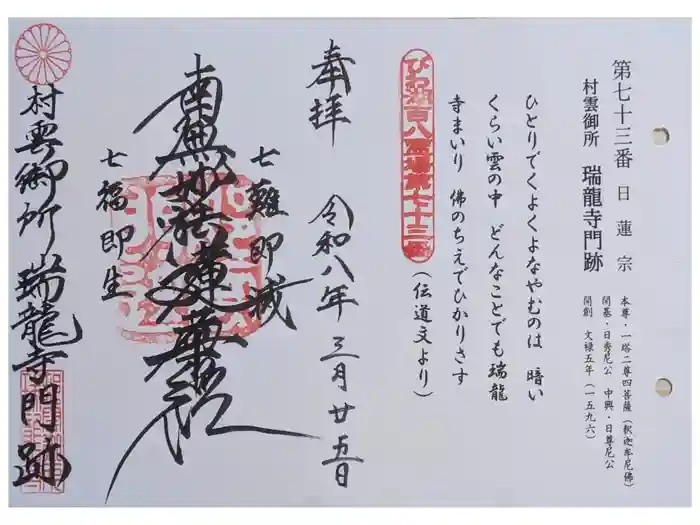 第七十三番 日蓮宗
村雲御所 瑞龍寺門跡
本尊・一塔二尊四菩薩(釈迦牟尼佛)
開基・日秀尼公 中興・日尊尼公
開創 文禄五年(一五九六)
ひとりでくよくよなやむのは 暗い
くらい雲の中 どんなことでも瑞龍
寺まいり 佛のちえでひかりさす
(伝道文より)
びわ湖百八霊場第七十三番
奉拝 令和八年 三月廿五日
七難即滅
南無妙法蓮華経
七福即生
村雲御所 瑞龍寺門跡